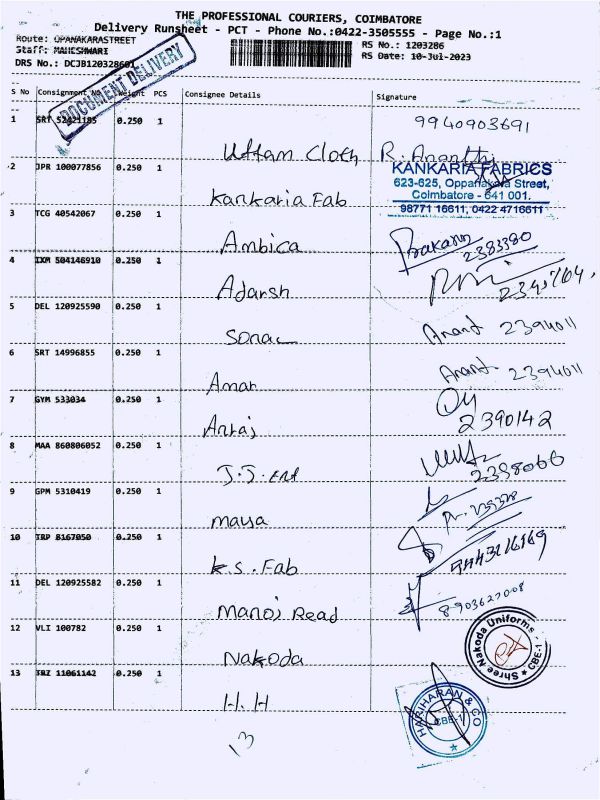 THE PROFESSIONAL COURIERS, COIMBATORE
Delivery Runsheet - PCT - Phone No.:0422-3505555 - Page No.:1
Route: OPANAKARASTREET
RS No.: 1203286
Staff: MAHESHWARI
RS Date: 10-Jul-2023
DRS No.: DCJB120328601
DOCUMENT DELIVERY
S No Consignment No Weight PCS Consignee Details Signature
1 SRT 52421185 0.250 1 9940903691
Uttam Cloth R. Ananthi
2 JPR 100077856 0.250 1 KANKARIA FABRICS
623-625, Oppanakara Street,
Coimbatore - 641 001.
Kankaria Fab 98771 16611, 0422 4716611
3 TCG 40542067 0.250 1
Ambica Prakash 2383380
4 IXM 504146910 0.250 1
Adarsh
5 DEL 120925590 0.250 1 Anand 2394011
Sonac
6 SRT 14996855 0.250 1 Anand 2394011
Aman
7 GYM 533034 0.250 1
2390142
8 MAA 860806052 0.250 1
J.J. Ent 2398066
9 GPM 5310419 0.250 1
maya
10 TRP 8167050 0.250 1
K.S. Fab
11 DEL 120925582 0.250 1
Manoj Read 8903627008
12 VLI 100782 0.250 1 Shree Nakoda Uniforms
CBE-1
Nakoda
13 TRZ 11061142 0.250 1 HARIHARAN & CO
CBE-1
H.H
13